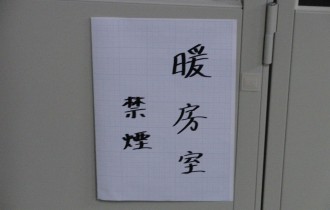 暖房室
禁煙